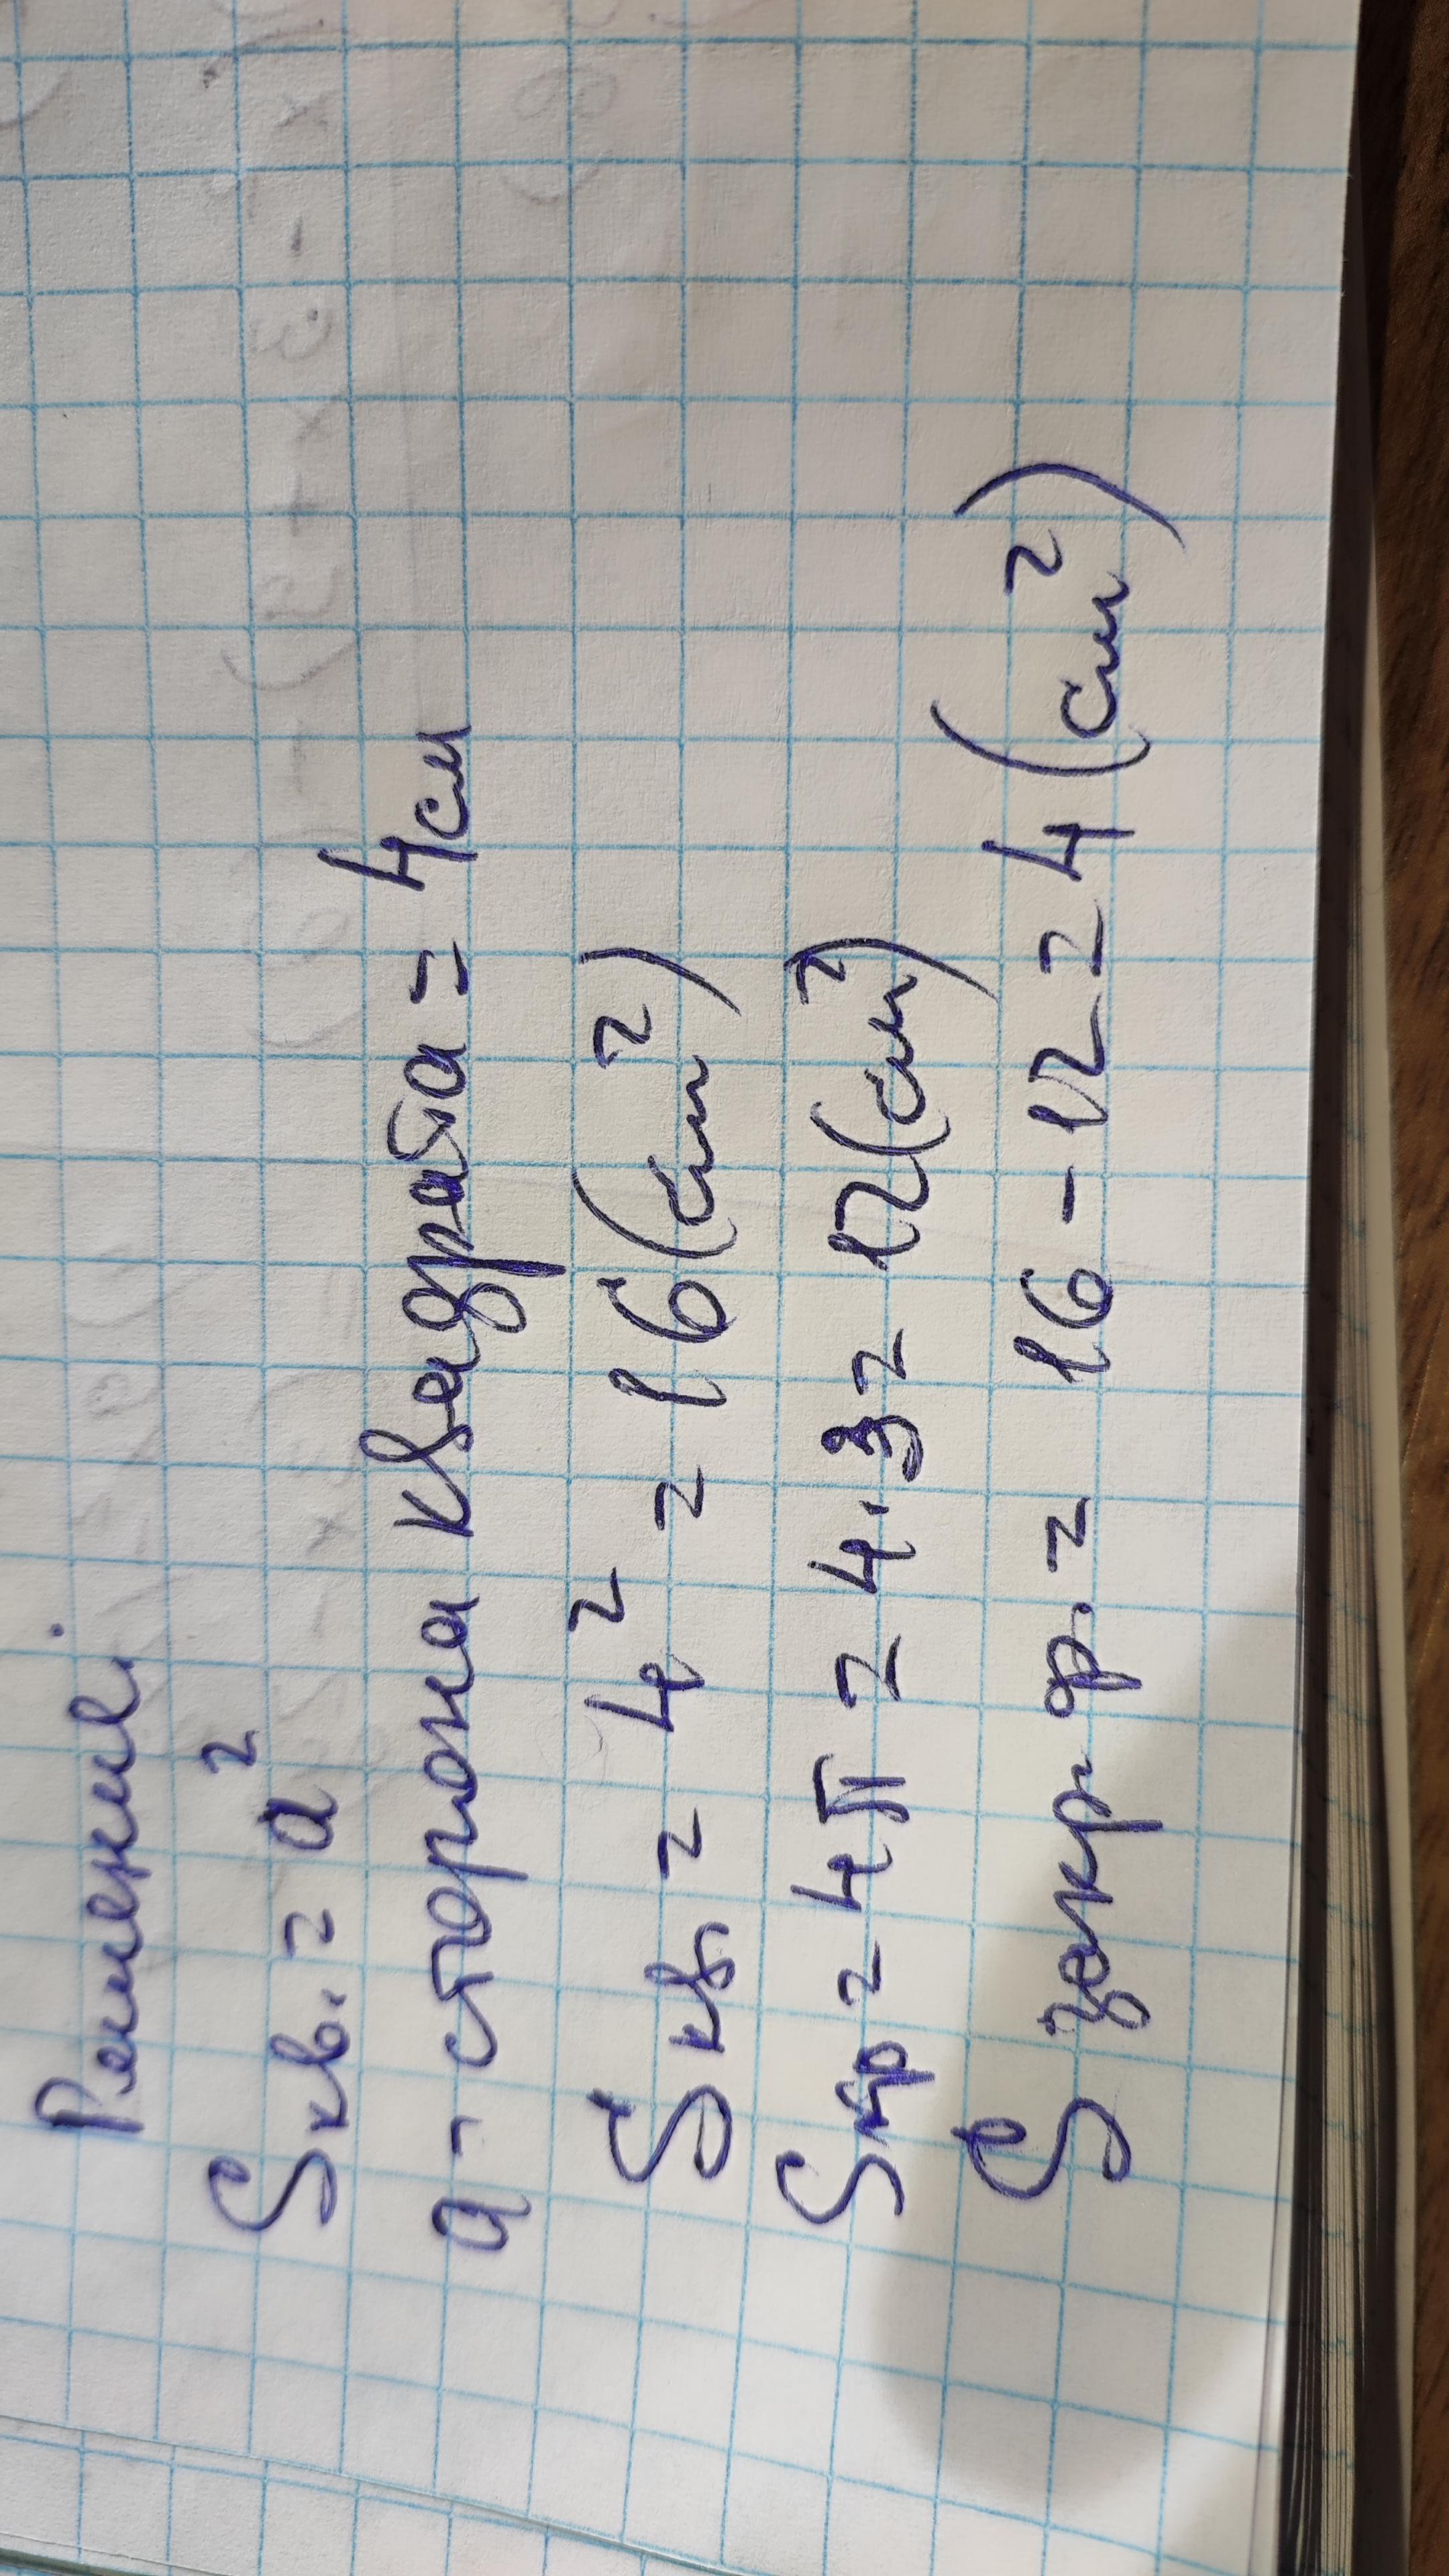 Решение.
Sкв. = a²
a - сторона квадрата = 4см
Sкв. = 4² = 16(см²)
Sкр = 4π = 4·3 = 12(см²)
S закр. ф. = 16 - 12 = 4(см²)